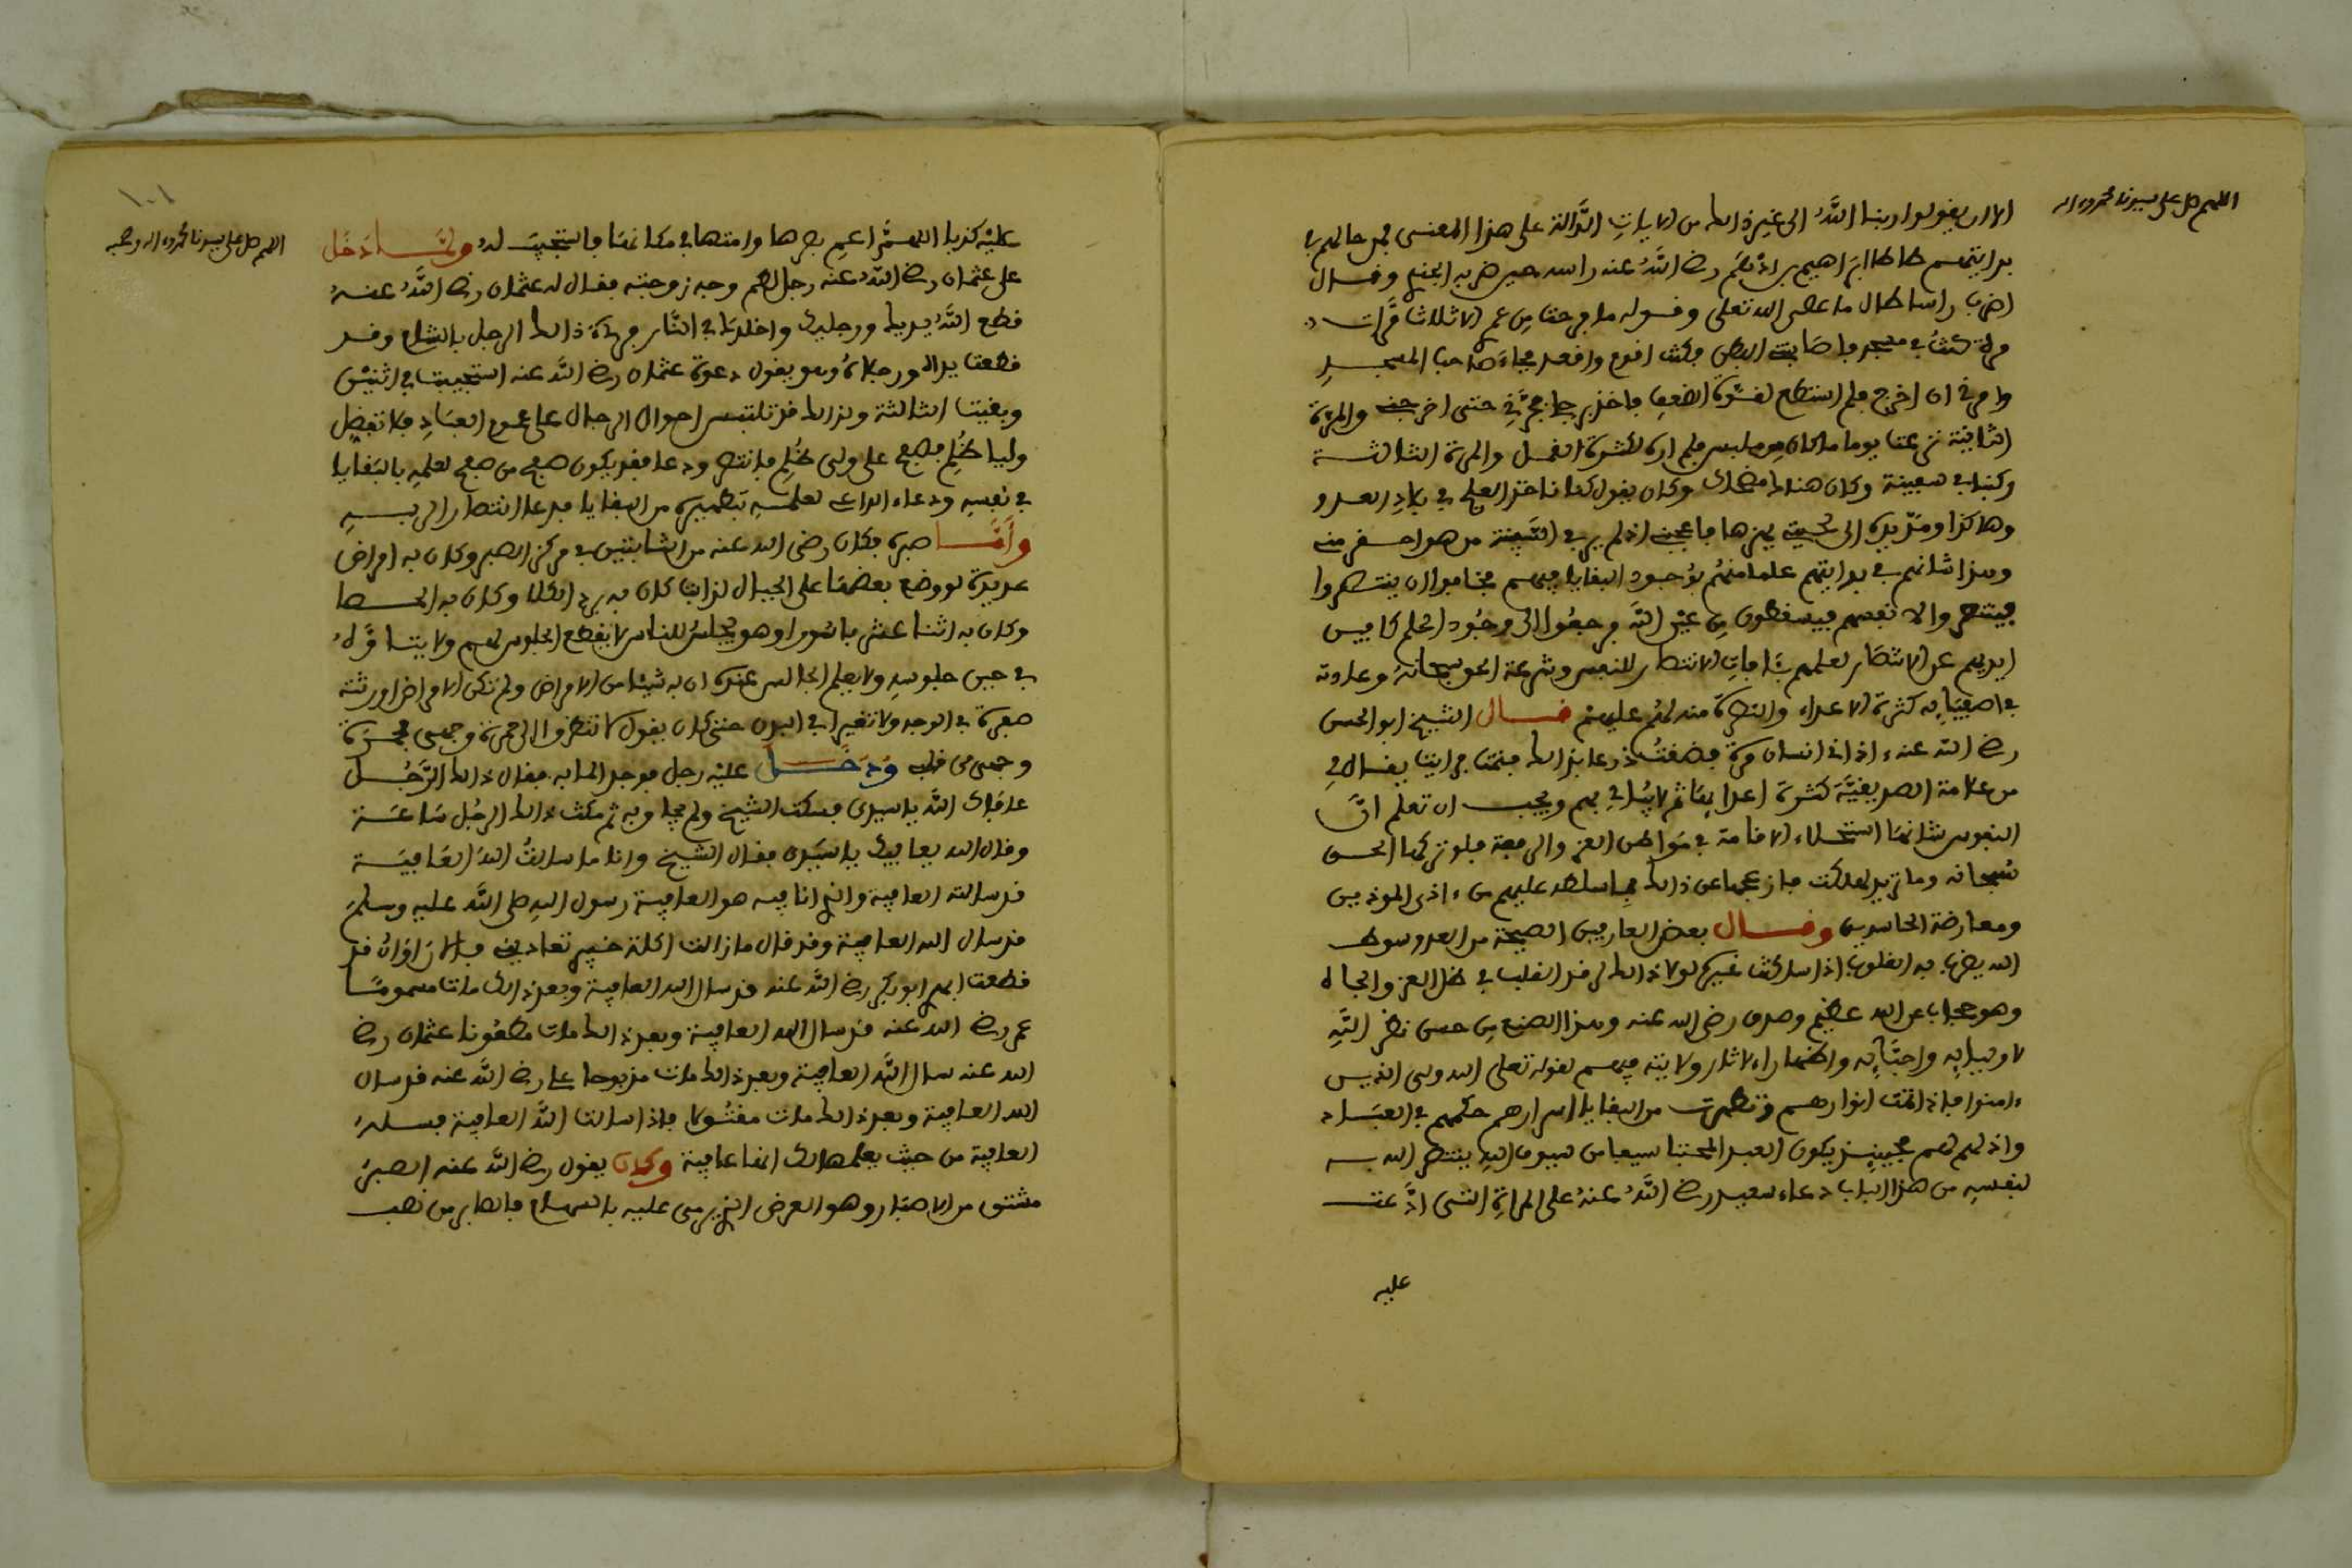 اللهم صل على سيدنا محمد واله
الا ان يقولوا ربنا اللَّهُ الى غير ذالك من الايات الدَّالة على هذا المعنى فمن حالهم في
بدايتهم طاطا ابراهيم بن ادهم رضي اللَّهُ عنه راسه حين ضربه الجندي وقال
اضرب راسا طال ما عصى الله تعلى وقوله ما فرحت من عمري الا ثلاث مرات
مرة كنت في مسجد فاصابت البطن فكنت اقوم واقعد فجاء صاحب المسجد
وامرني ان اخرج فلم استطع لشدة الضعف فاخذ برجلي فجرني حتى اخرجني والمرة
الثانية نزعت يوما ما كان من ملبس فلم اره لكثرة القمل والمرة الثالثة
وكنا في سفينة وكان هناك مضحك وكان يقول كنا ناخذ العلج في بلاد العدو
وهاكذا ومد يده الى لحيتي يهزها فاعجبني اذ لم ير في السَّفينة من هو احقر مني
وهذا شانهم في بدايتهم علما منهم بوجود البقايا فيهم فخافوا ان ينتصروا
فينتصروا لانفسهم فيسقطون من عين اللَّه فرجعوا الى وجود الحلم كافين
ايديهم عن الانتصار لعلمهم بئافات الانتصار للنفس وشرعة الحق سبحانه وعادته
في اصفيائه كثرة الاعداء والنصرة منه لهم عليهم قال الشيخ ابو الحسن
رضي اللَّه عنه ءاذاني انسان مرة فضقت ذرعا بذالك فنمت فرايت يقال لي
من علامة الصديقيَّة كثرة اعدائها ثم لا يبالي بهم ويجب ان تعلم انَّ
النفوس شانها استحلاء الاقامة في مواطن العز والرفعة فلو تركها الحق
سبحانه وما تريد لهلكت فازعجها عن ذالك بما سلط عليهم من ءاذى الموذين
ومعارضة الحاسدين وقال بعض العارفين الصيحة من العدو سوط
الله يضرب به القلوب اذا ساكنت غيره لولا ذالك لرقد القلب في ظل العز والجاه
وهو حجاب عن الله عظيم وصدق رضي الله عنه وهذا الصنع من حسن نظر اللَّه
لاوليائه واحبَّائه واظهار لاثار ولايته فيهم لقوله تعلى الله ولي الذين
ءامنوا فاذا تمت انوارهم وتطهرت من البقايا اسرارهم حكمهم في العباد
واذلهم لهم فحينئذ يكون العبد المجتبا سيفا من سيوف الله ينتصر الله به
لنفسه من هذا الباب دعاء سعيد رضي اللَّهُ عنهُ على المراة التي ادَّعت
عليه
اللهم صل على سيدنا محمد واله وصحبه
عليه كذبا اللهمَّ اعم بصرها وامتها في مكانها فاستجيب له ولمَّا دخل
على عثمان رضي اللَّه عنه رجل لطم وجه زوجته فقال له عثمان رضي اللَّه عنه
قطع اللَّه يديك ورجليك واخلدك في النَّار فرءى ذالك الرجل بالشام وقد
قطعت يداه ورجلاه وهو يقول دعوة عثمان رضي اللَّه عنه استجيبت في اثنين
وبقيت الثالثة ولذالك قد تلتبس احوال الرجال على عموم العباد فلا تفضل
وليا ظلم فصفح على ولي ظلم فانتصر ودعا فقد يكون صفح من صفح لعلمه بالبقايا
في نفسه ودعاء الداعي لعلمه بتطهيره من البقايا فدعا انتصارا لربه
وأمَّا صبره فكان رضي الله عنه من الثابتين في مركز الصبر وكان به امراض
عديدة لو وضع بعضها على الجبال لذابت كان به برد الكلا وكان به الحصا
وكان به اثنا عشر باسورا وهو يجلس للناس لا يقطع الجلوس لهم ولا يتاوَّه
في حين جلوسه ولا يعلم الجالس عنده ان به شيئا من الامراض ولم تكن الامراض اورثته
صفرة في الوجه ولا تغيرا في البدن حتى كان يقول لا تنظروا الى حمرة وجهي فحمرة
وجهي من قلبي ودخل عليه رجل فوجد الما به فقال ذالك الرجل
عافاك اللَّه يا سيدي فسكت الشيخ ولم يجاوبه ثم مكث ذالك الرجل ساعة
وقال الله يعافيك يا سيدي فقال الشيخ وانا ما سالت اللَّه العافية
قد سالته العافية والذي انا فيه هو العافية رسول الله صلى اللَّه عليه وسلم
قد سال الله العافية وقد قال ما زالت اكلة خيبر تعادني فالان اوان قد
قطعت ابهري ابو بكر رضي اللَّه عنه قد سال الله العافية وبعد ذالك مات مسموما
عمر رضي الله عنه قد سال الله العافية وبعد ذالك مات مطعونا عثمان رضي
الله عنه سال اللَّه العافية وبعد ذالك مات مذبوحا علي رضي اللَّه عنه قد سال
الله العافية وبعد ذالك مات مقتولا فاذا سالت اللَّه العافية فسله
العافية من حيث يعلم لك انها عافية وكان يقول رضي اللَّه عنه الصبر
مشتق من الاصبار وهو الغرض الذي يرمى عليه بالسهام فالصابر من نصب